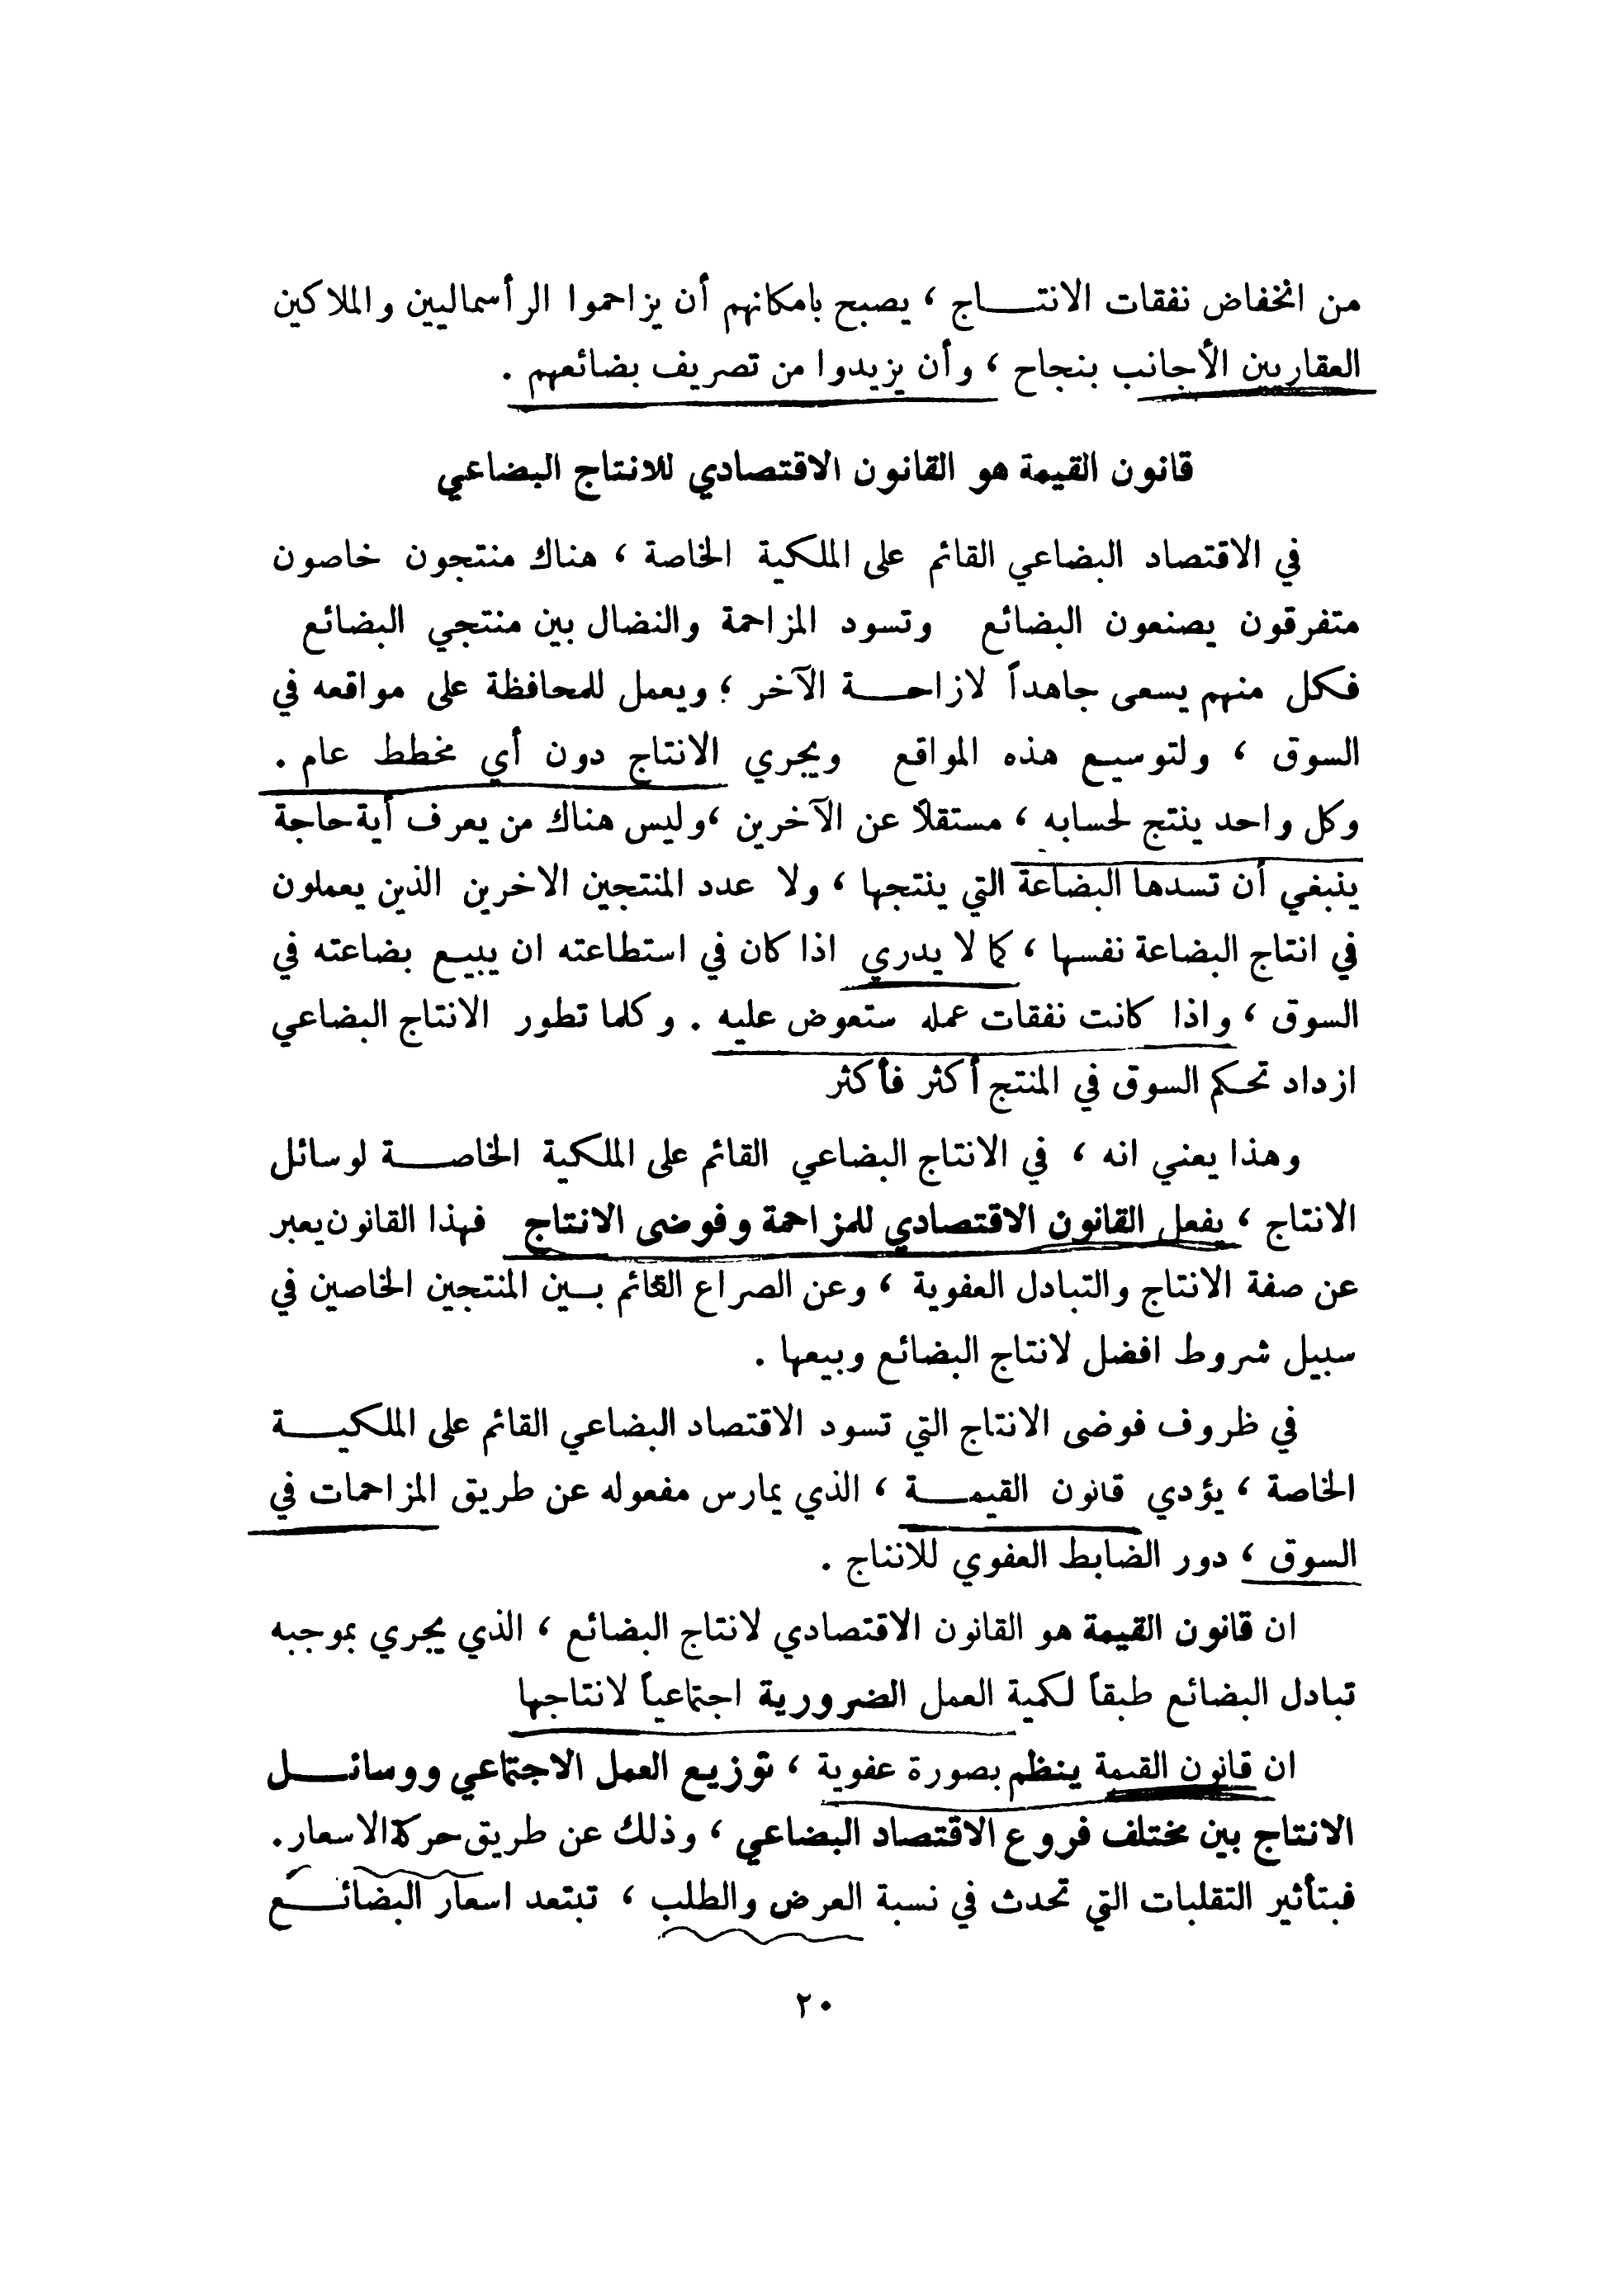 من انخفاض نفقات الانتـــاج ، يصبح بامكانهم أن يزاحموا الرأسماليين والملاكين
العقاريين الأجانب بنجاح ، وأن يزيدوا من تصريف بضائعهم .
قانون القيمة هو القانون الاقتصادي للانتاج البضاعي
في الاقتصاد البضاعي القائم على الملكية الخاصة ، هناك منتجون خاصون
متفرقون يصنعون البضائع وتسود المزاحمة والنضال بين منتجي البضائع
فكل منهم يسعى جاهداً لازاحـــة الآخر ؛ ويعمل للمحافظة على مواقعه في
السوق ، ولتوسيع هذه المواقع ويجري الانتاج دون أي مخطط عام .
وكل واحد ينتج لحسابه ، مستقلاً عن الآخرين ،وليس هناك من يعرف أية حاجة
ينبغي أن تسدها البضاعة التي ينتجها ، ولا عدد المنتجين الاخرين الذين يعملون
في انتاج البضاعة نفسها ، كما لا يدري اذا كان في استطاعته ان يبيـع بضاعته في
السوق ، واذا كانت نفقات عمله ستعوض عليه . وكلما تطور الانتاج البضاعي
ازداد تحكم السوق في المنتج أكثر فأكثر
وهذا يعني انه ، في الانتاج البضاعي القائم على الملكية الخاصـــة لوسائل
الانتاج ، يفعل القانون الاقتصادي للمزاحمة وفوضى الانتاج فهذا القانون يعبر
عن صفة الانتاج والتبادل العفوية ، وعن الصراع القائم بـين المنتجين الخاصين في
سبيل شروط افضل لانتاج البضائع وبيعها .
في ظروف فوضى الانتاج التي تسود الاقتصاد البضاعي القائم على الملكيـــة
الخاصة ، يؤدي قانون القيمـــة ، الذي يمارس مفعوله عن طريق المزاحمات في
السوق ، دور الضابط العفوي للانتاج .
ان قانون القيمة هو القانون الاقتصادي لانتاج البضائع ، الذي يجري بموجبه
تبادل البضائع طبقاً لكمية العمل الضرورية اجتماعياً لانتاجها
ان قانون القيمة ينظم بصورة عفوية ، توزيع العمل الاجتماعي ووسائـــل
الانتاج بين مختلف فروع الاقتصاد البضاعي ، وذلك عن طريق حركة الاسعار .
فبتأثير التقلبات التي تحدث في نسبة العرض والطلب ، تبتعد اسعار البضائـــع
٢٠